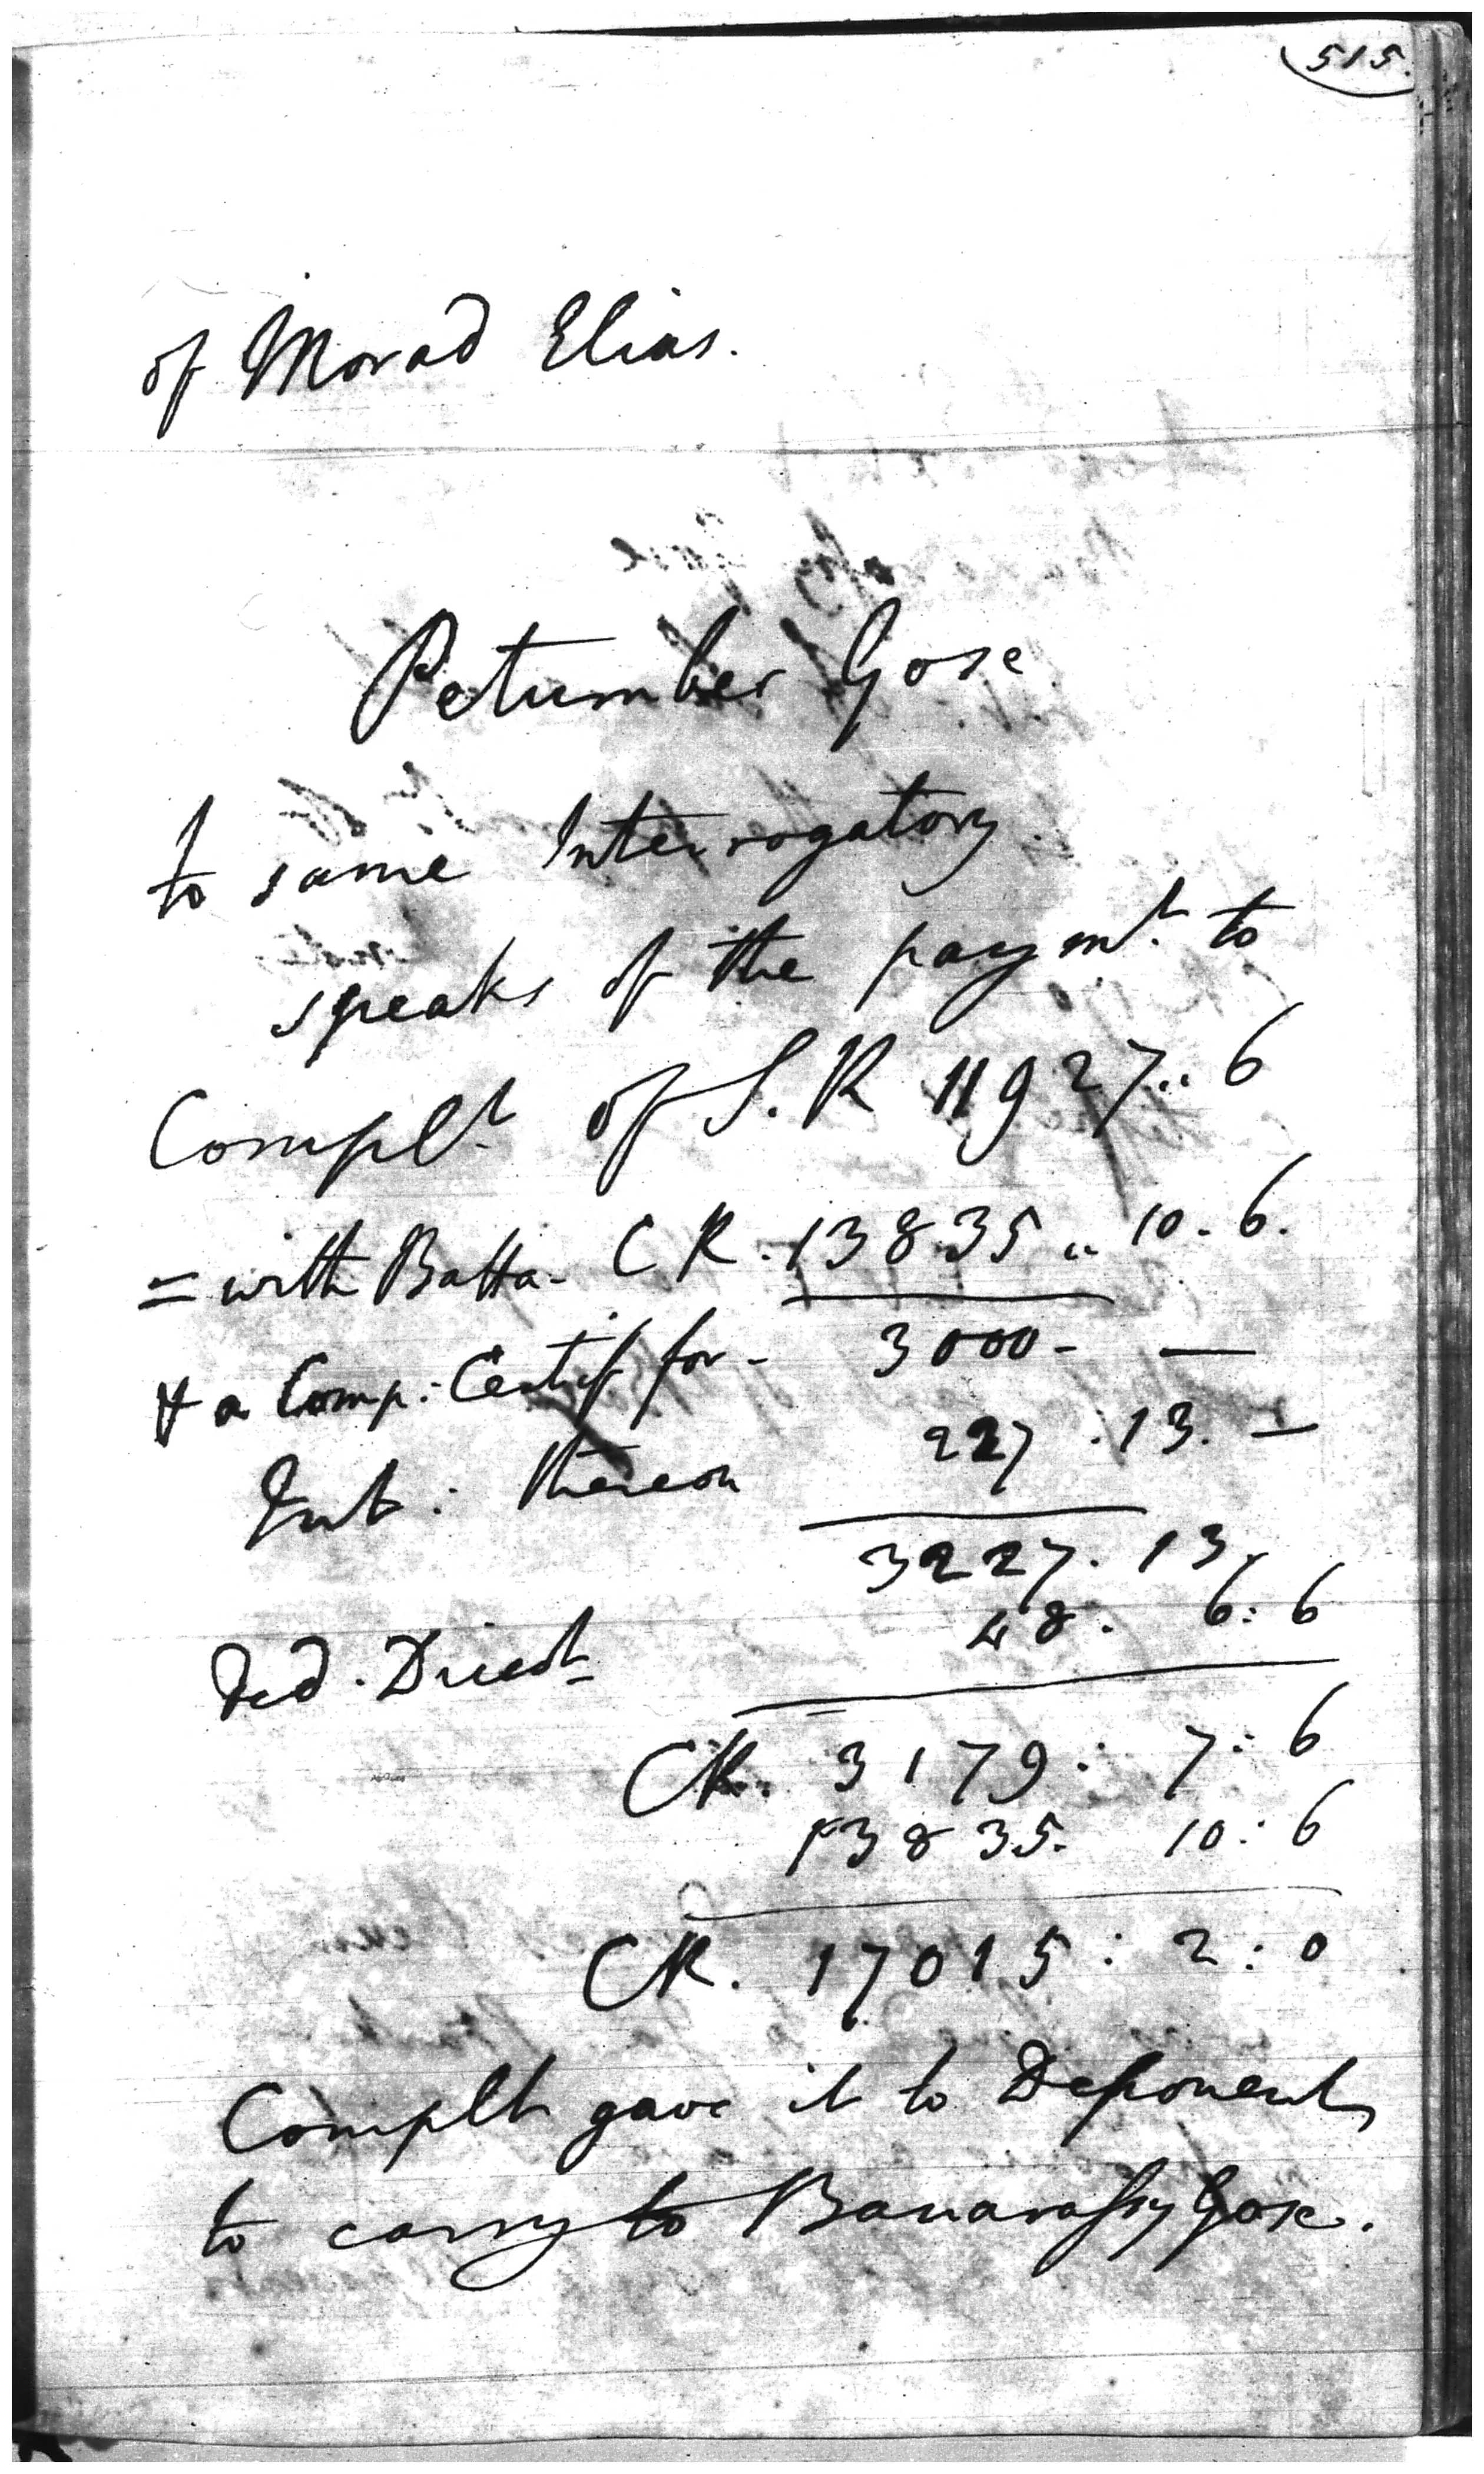 515.
of Morad Elias.
Petumber Gose
to same Interrogatory.
speaks of the paymt. to
Complt. of S. R 11927 .. 6
= with Batta - C R. 13835 .. 10 . 6.
+ a Comp: Certif for - 3000 - —
Int: thereon 227 . 13 . —
3227 . 13 .
Ded. Disct 48 . 6 : 6
CR. 3179 : 7 : 6
13835 . 10 : 6
CR. 17015 : 2 : 0
Complt gave it to Deponent
to carry to Banarassy Gose.